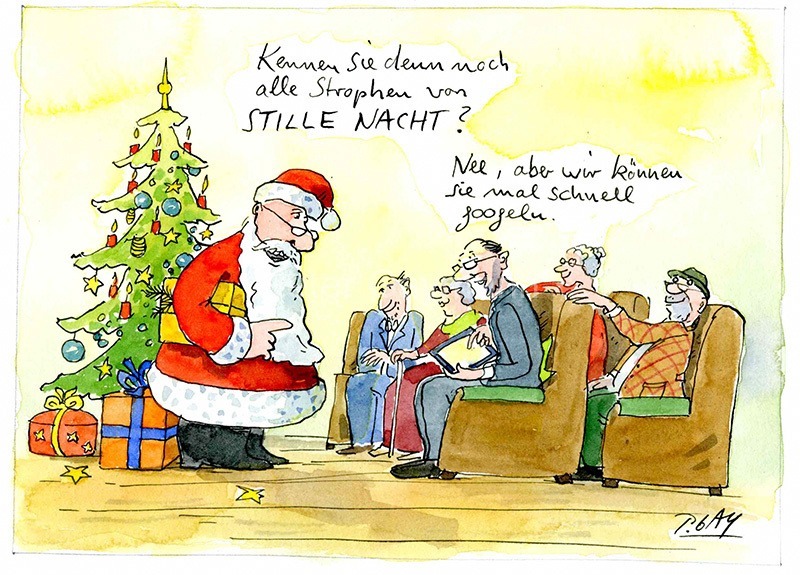 Kennen Sie denn noch
alle Strophen von
STILLE NACHT?
Nee, aber wir können
sie mal schnell
googeln.
P. GAY